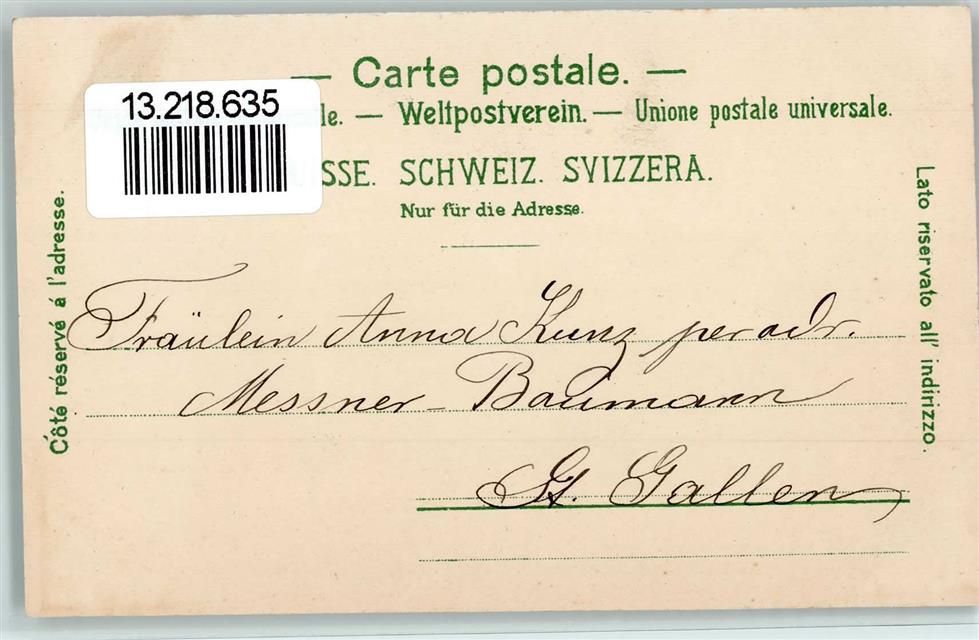 — Carte postale. —
13.218.635
le. — Weltpostverein. — Unione postale universale.
SSE. SCHWEIZ. SVIZZERA.
Nur für die Adresse.
Côté réservé á l'adresse.
Lato riservato all' indirizzo.
Fräulein Anna Kunz per adr.
Messner-Baumann
St. Gallen